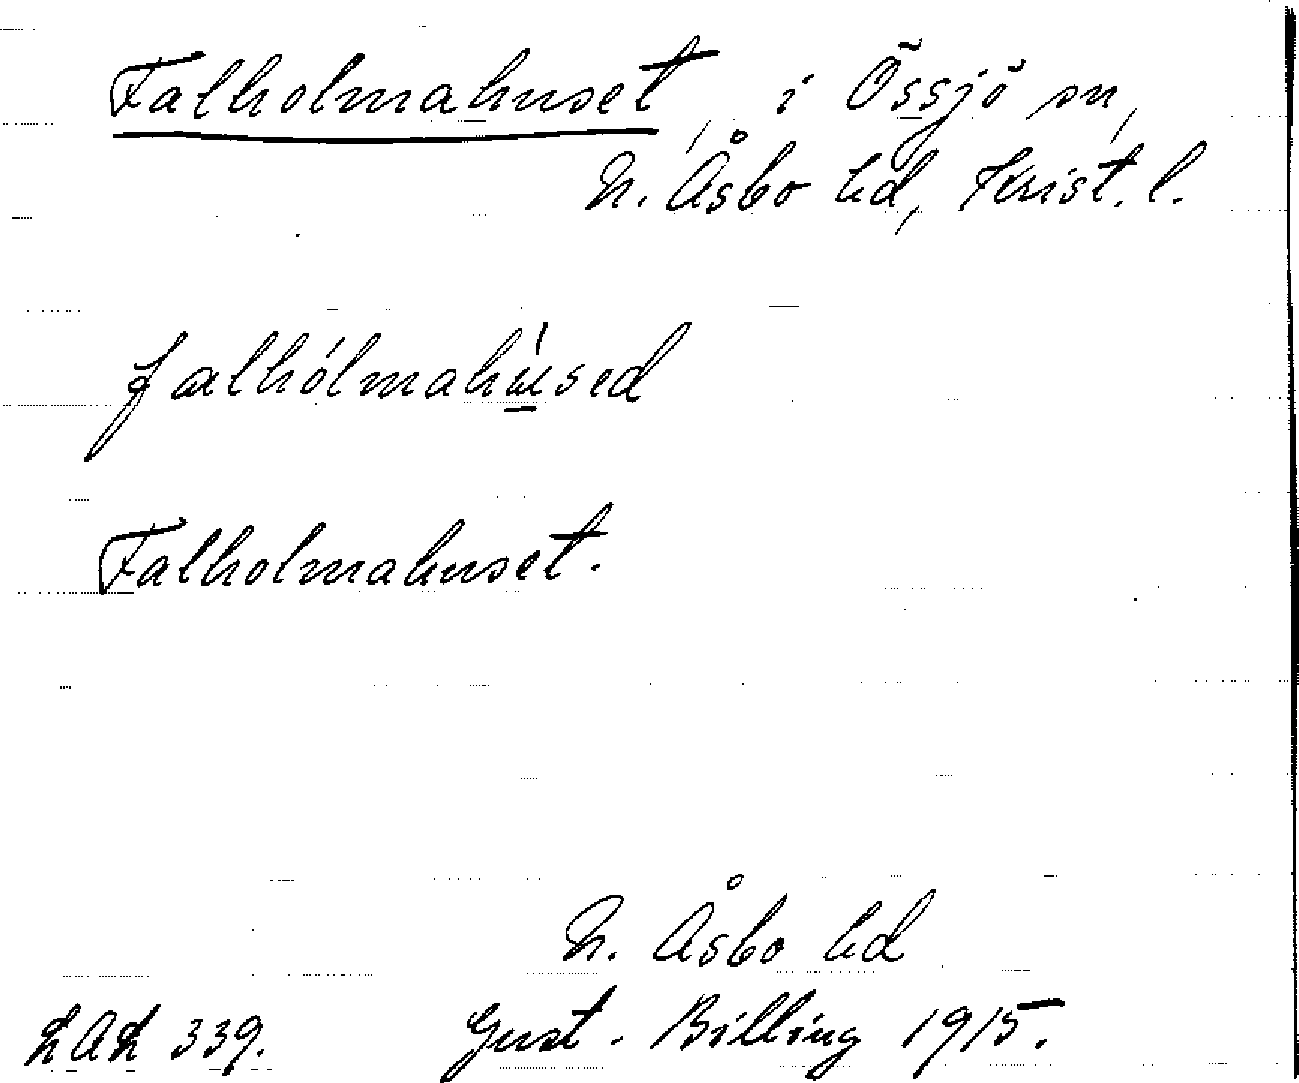 Falholmahuset, i Össjö sn,
N. Åsbo hd, Krist. l.
falhólmahúsed
Falholmahuset.
N. Åsbo hd
LAL 339. Gust. Billing 1915.